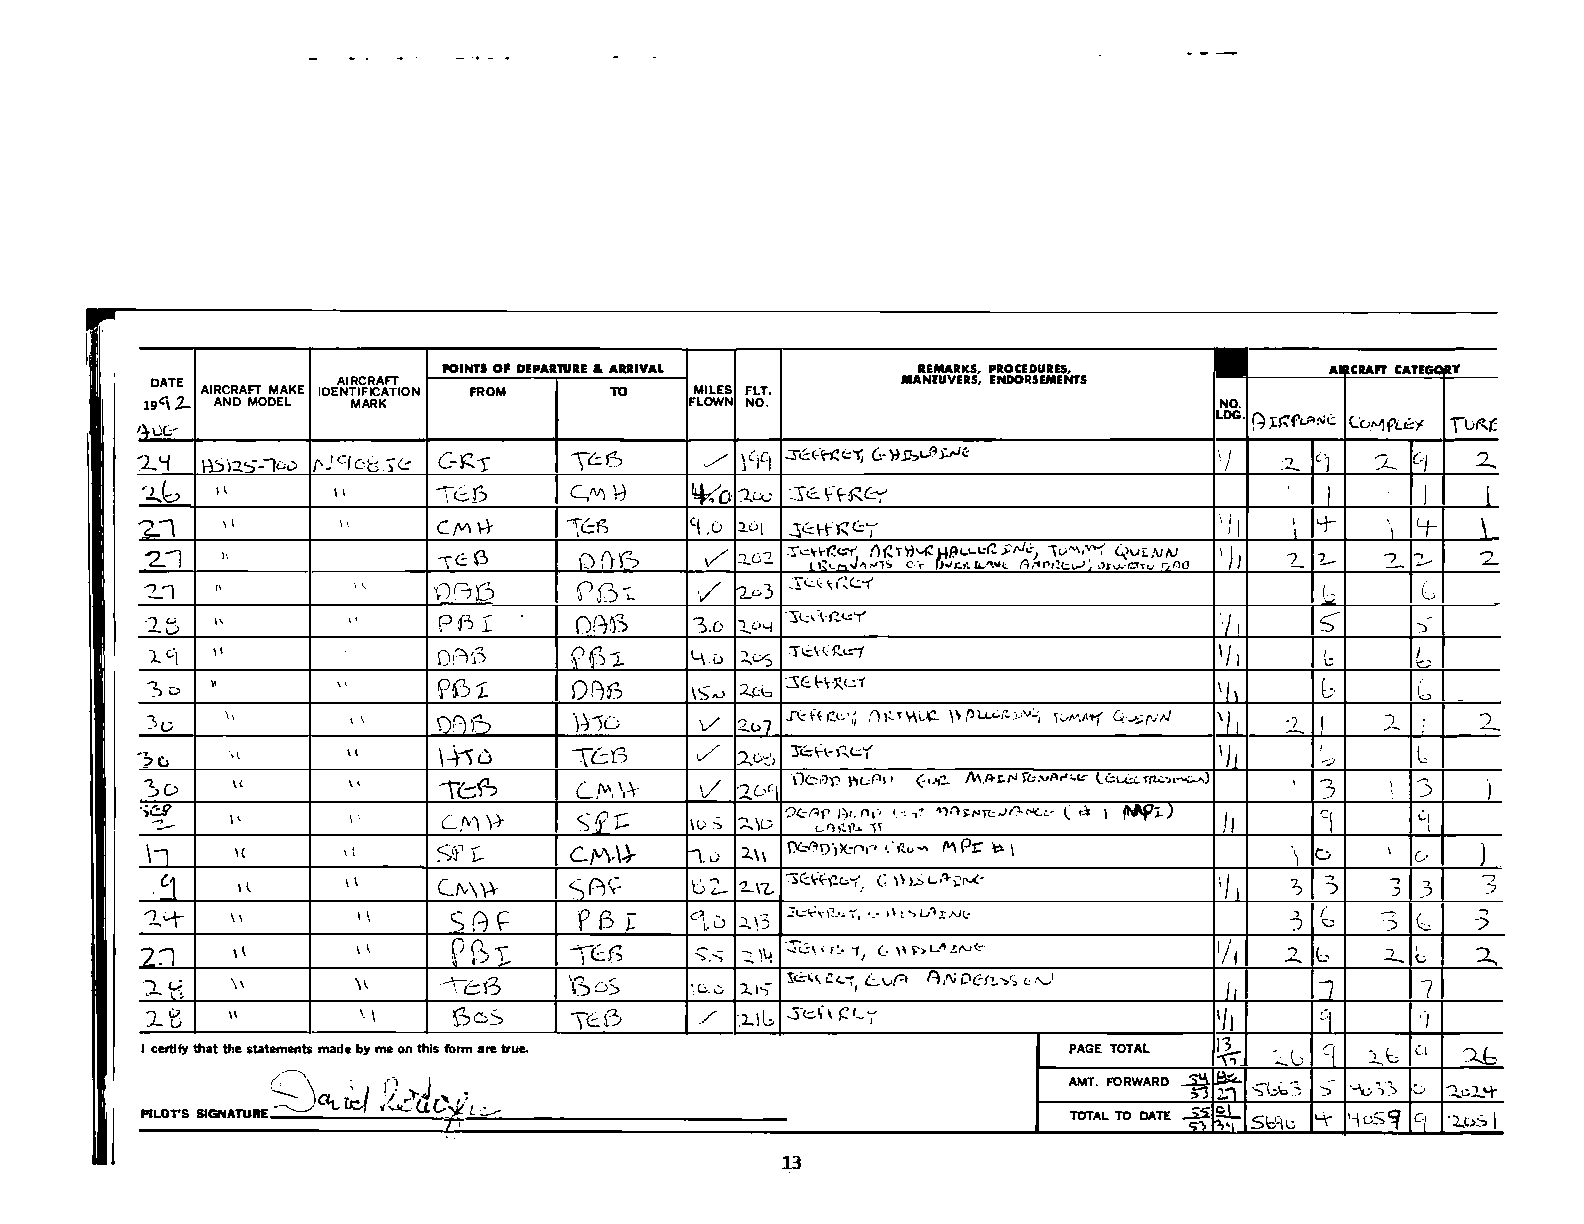 DATE 1992 AUG AIRCRAFT MAKE AND MODEL AIRCRAFT IDENTIFICATION MARK POINTS OF DEPARTURE & ARRIVAL FROM TO MILES FLOWN FLT. NO. REMARKS, PROCEDURES, MANEUVERS, ENDORSEMENTS NO. LDG. AIRCRAFT CATEGORY AIRPLANE COMPLEX TURB
24 HS125-700 N908JE CRI TEB ✓ 199 JEFFREY, GHISLAINE 1/ 2 9 2 9 2
26 " " TEB CMH 4.0 200 JEFFREY 1 1 1
27 " " CMH TEB 9.0 201 JEFFREY 1/1 1 4 1 4 1
27 " TEB DAB ✓ 202 JEFFREY, ARTHUR HALLERING, TOMMY QUINN 1/1 2 2 2 2 2
27 " " DAB PBI ✓ 203 JEFFREY 6 6
28 " " PBI DAB 3.0 204 JEFFREY 1/1 5 5
29 " DAB PBI 4.0 205 JEFFREY 1/1 6 6
30 " " PBI DAB 15.0 206 JEFFREY 1/1 6 6
30 " " DAB HTO ✓ 207 JEFFREY, ARTHUR HALLERING, TOMMY QUINN 1/1 2 1 2 1 2
30 " " HTO TEB ✓ 208 JEFFREY 1/1 6 6
30 " " TEB CMH ✓ 209 DEAD HEAD FOR MAINTENANCE 1 3 1 3 1
SEP 2 " " CMH SPI 10.5 210 DEAD HEAD FOR MAINTENANCE (# 1 MPI) /1 9 9
17 " " SPI CMH 7.0 211 DEADHEAD FROM MPI #1 1 0 1 0 1
9 " " CMH SAF 212 JEFFREY, GHISLAINE 1/1 3 3 3 3 3
24 " " SAF PBI 9.0 213 JEFFREY, GHISLAINE 3 6 3 6 3
27 " " PBI TEB 5.5 214 JEFFREY, GHISLAINE 1/1 2 6 2 6 2
28 " " TEB BOS 10.0 215 JEFFREY, EVA ANDERSSON /1 7 7
28 " " BOS TEB ✓ 216 JEFFREY 1/1 9 9
I certify that the statements made by me on this form are true. PAGE TOTAL 13 26 9 26 9 26
AMT. FORWARD 27 5663 5 4033 0 2024
PILOT'S SIGNATURE David Rodgers TOTAL TO DATE 5690 4 4059 9 2051
13